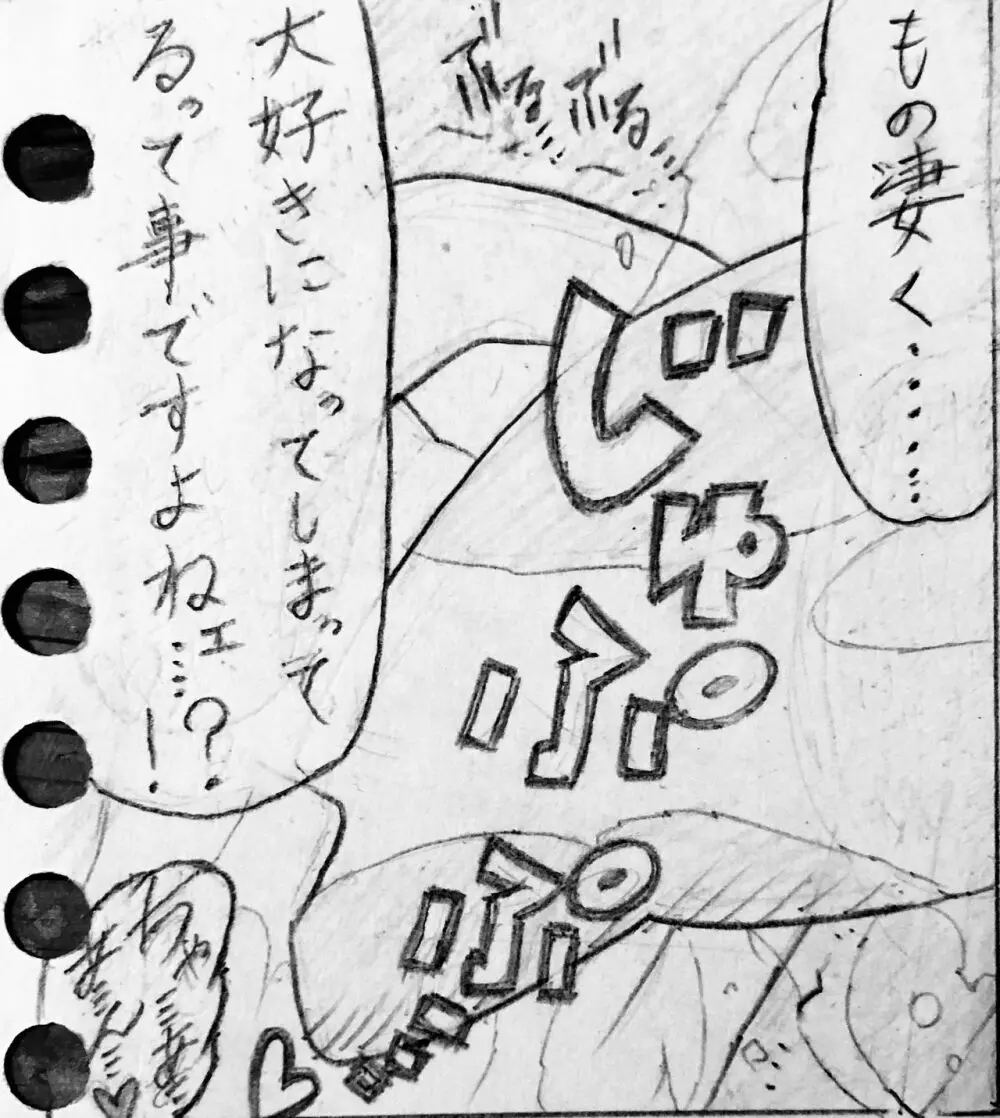 もの凄く‥‥‥‥
ぶるぶる…
じゅぷぷ…
大好きになってしまって
るって事ですよねェ…?!